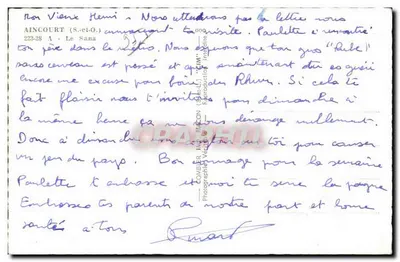 Mon Vieux Henri - Nous attendions pas la lettre nous
AINCOURT (S.-et-O.)
annonçant ta visite. Paulette a rencontré
223-28 - Le Sana
ton père dans le. Nous espérons que ton gros "Rube"
sans cerveau est passé et que maintenant du es guéri
encore une excuse pour boire du Rhum. Si cela te
fait plaisir nous t'invitons pour dimanche à
la même heure ça ne nous dérange nullement.
Donc à dimanche nous sur toi pour causer
un peu du pays. Bon courage pour la semaine
Paulette t'embrasse et moi te serre la pogne
Embrasse tes parents de notre part et bonne
santé à tous